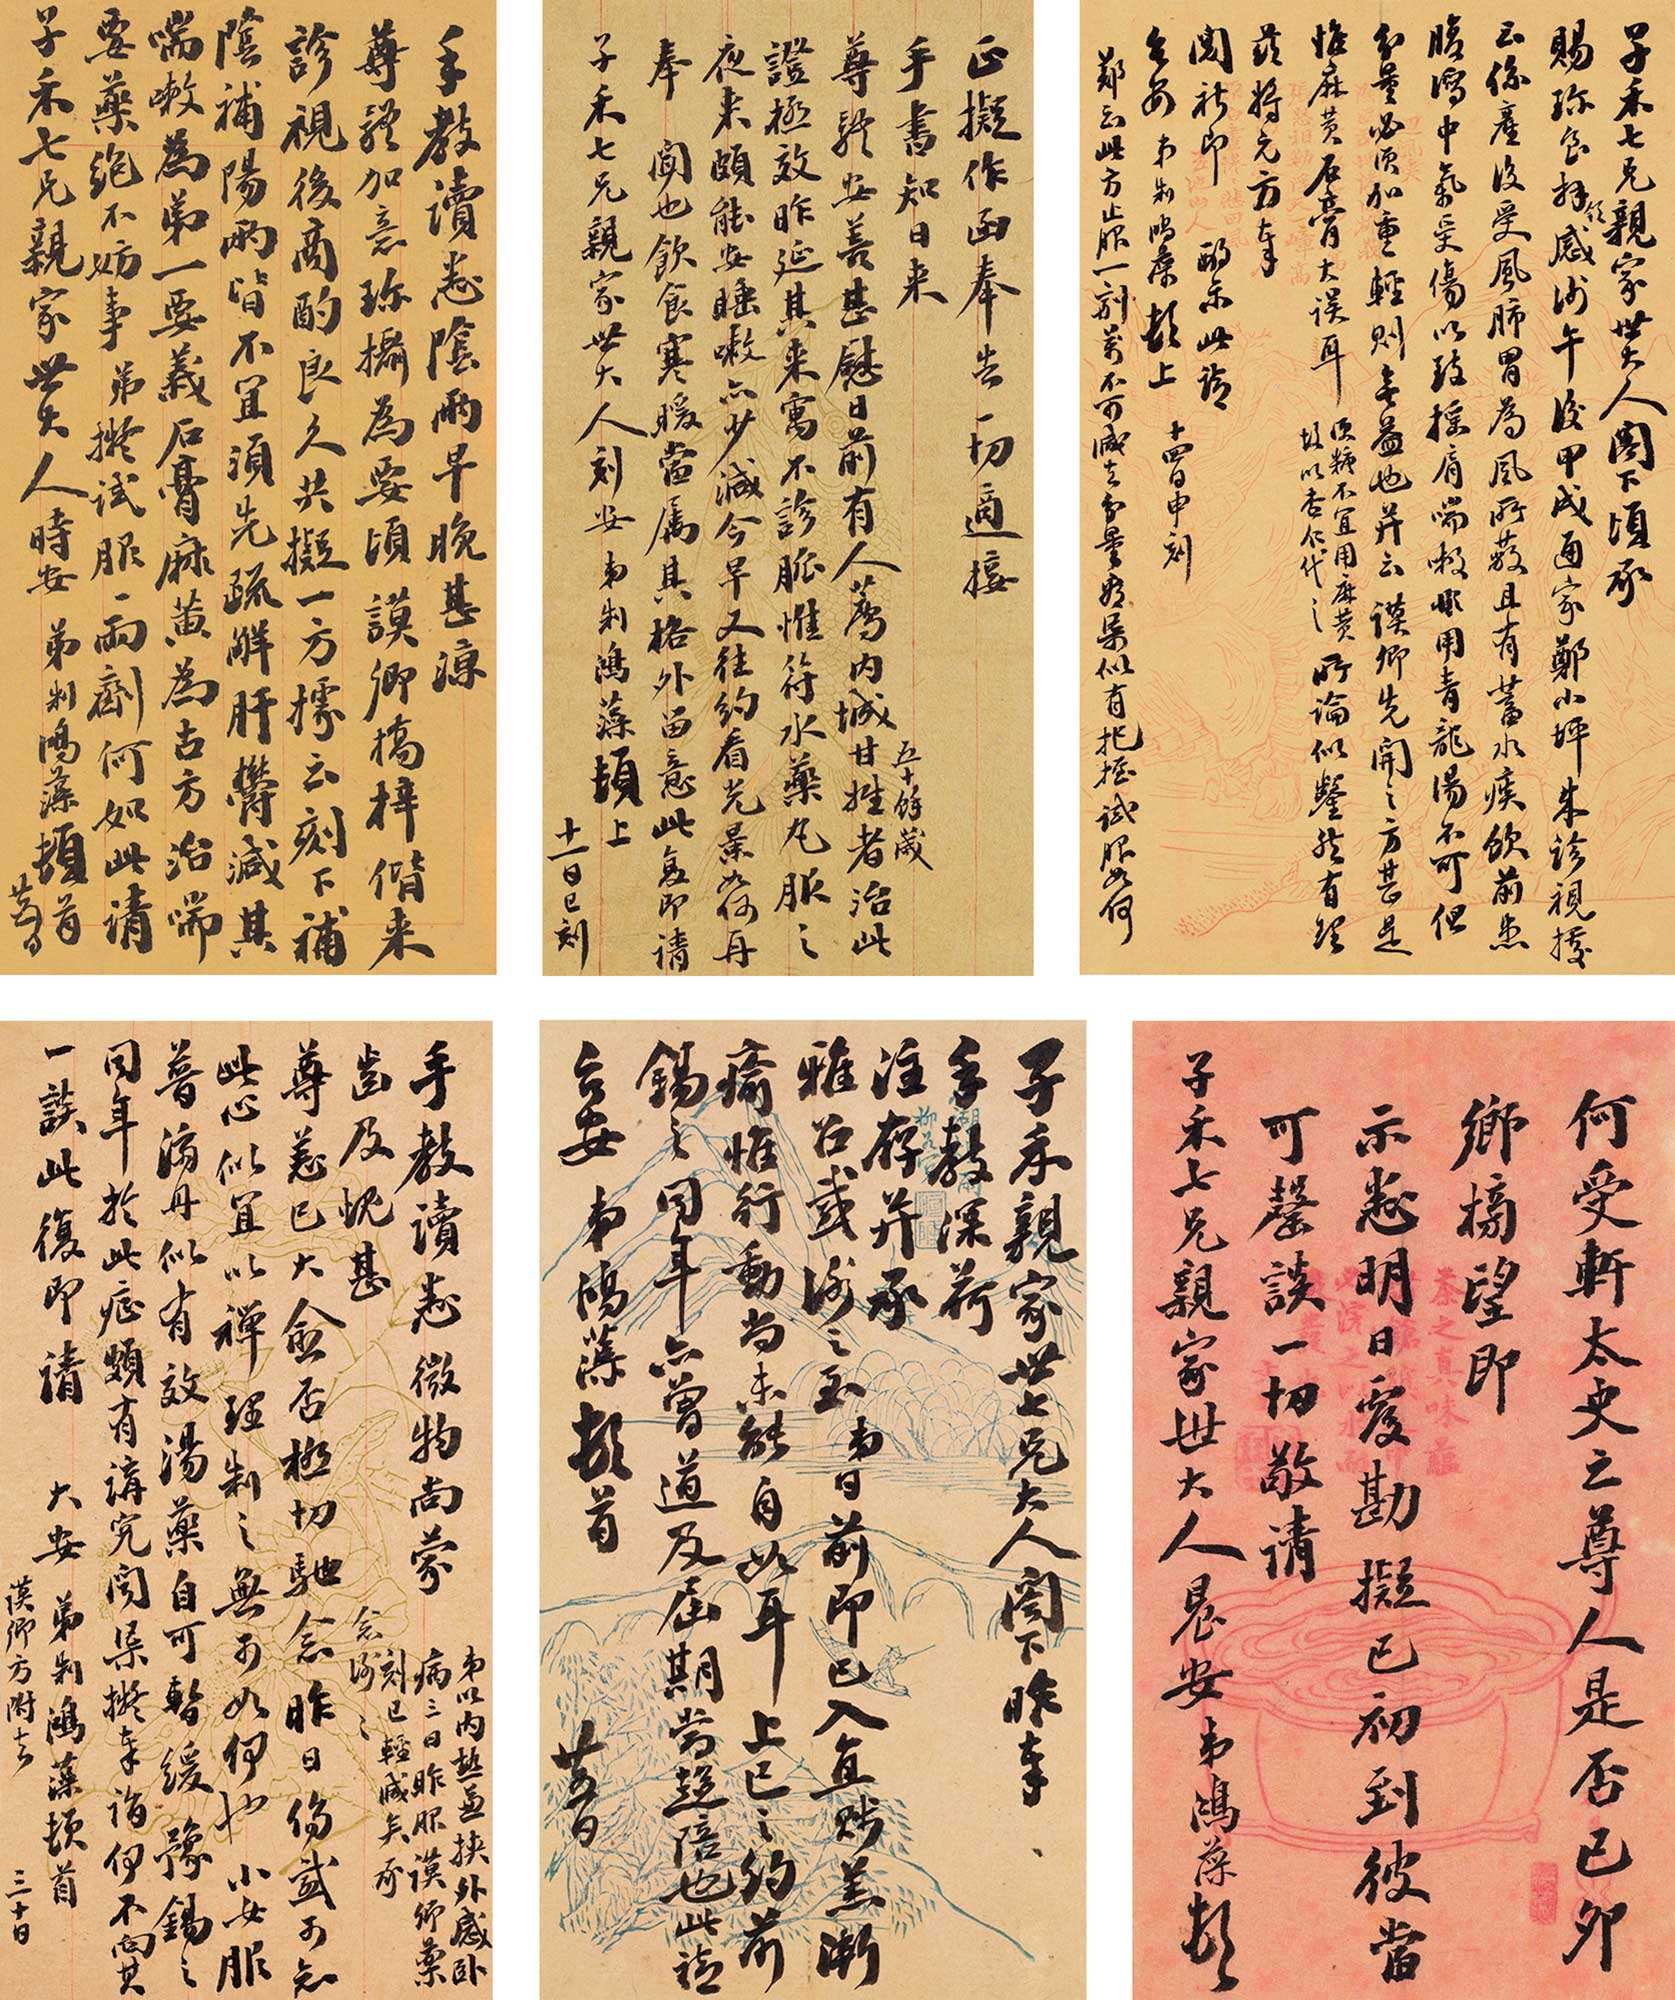 子禾七兄親家世大人閣下頃承
賜珍食拜領感謝午後甲戌通家鄭小坪來診視據
云係產後受風肺胃為風所蔽且有蓄水痰飲前患
腹瀉中氣受傷以致擡肩喘嗽非用青龍湯不可但
分量必須加重輕則無益也并云謨卿先開之方甚是
惟麻黃石膏大誤耳
須糖不宜用麻黃
故以杏仁代之
所論似鑿然有理
茲將元方奉
閱祈即
酌示此請
台安 弟制鴻藻頓上
十四日申刻
鄭云此方止服一剎萬不可減去分量看景似有把握試服如何
正擬作函奉告一切適接
手書知日來
尊體安善甚慰日前有人薦內城甘姓者治此
五十餘歲
證極效昨延其來寓不診脈惟符水藥丸服之
夜來頗能安睡嗽亦少減今早又往約看光景如何再
奉 聞也飲食寒暖當屬其格外留意此復即請
子禾七兄親家世大人刻安 弟制鴻藻頓上
十一日巳刻
手教讀悉陰雨早晚甚涼
尊體加意珍攝為要頃謨卿橋梓偕來
診視後商酌良久共擬一方據云刻下補
陰補陽兩皆不宜須先疏解肝鬱減其
喘嗽為第一要義石膏麻黃為古方治喘
要藥絕不妨事弟擬試服一兩劑何如此請
子禾七兄親家世大人時安 弟制鴻藻頓首
何受軒太史之尊人是否已卯
鄉榜望即
示悉明日覆勘擬巳初到彼當
可罄談一切敬請
子禾七兄親家世大人晨安弟鴻藻頓
子禾親家世七兄大人閣下昨奉
手教深荷
注存并承
雅召感謝之至弟日前即已入直賤恙漸
痊惟行動尚未能自如耳上巳之約前
錫之同年亦曾道及屆期當趨陪也此請
台安 弟鴻藻頓首
手教讀悉微物尚蒙
齒及愧甚
弟以內熱兼挾外感臥
病三日昨服謨卿藥
刻已輕減矣承
念謝謝
尊恙已大愈否極切馳念昨日傷感可知
此心似宜以禪理制之無可如何也小女服
普濟丹似有效湯藥自可暫緩豫錫之
同年於此症頗有講究聞杲擬奉詣何不向其
一談此復即請 大安 弟制鴻藻頓首
三十日
謨卿方附去